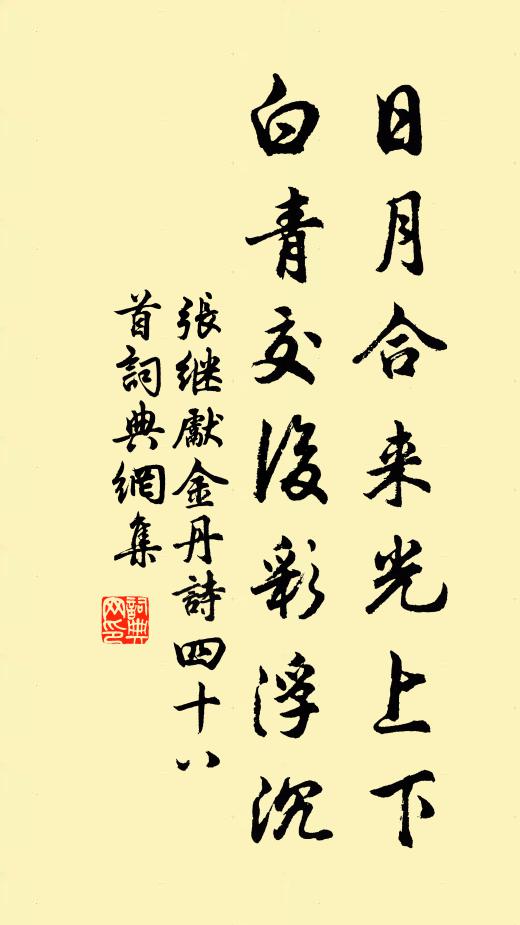 日月合来光上下
白青交後彩浮沉
張继獻金丹詩四十八
首詞典網集
詞典
网印